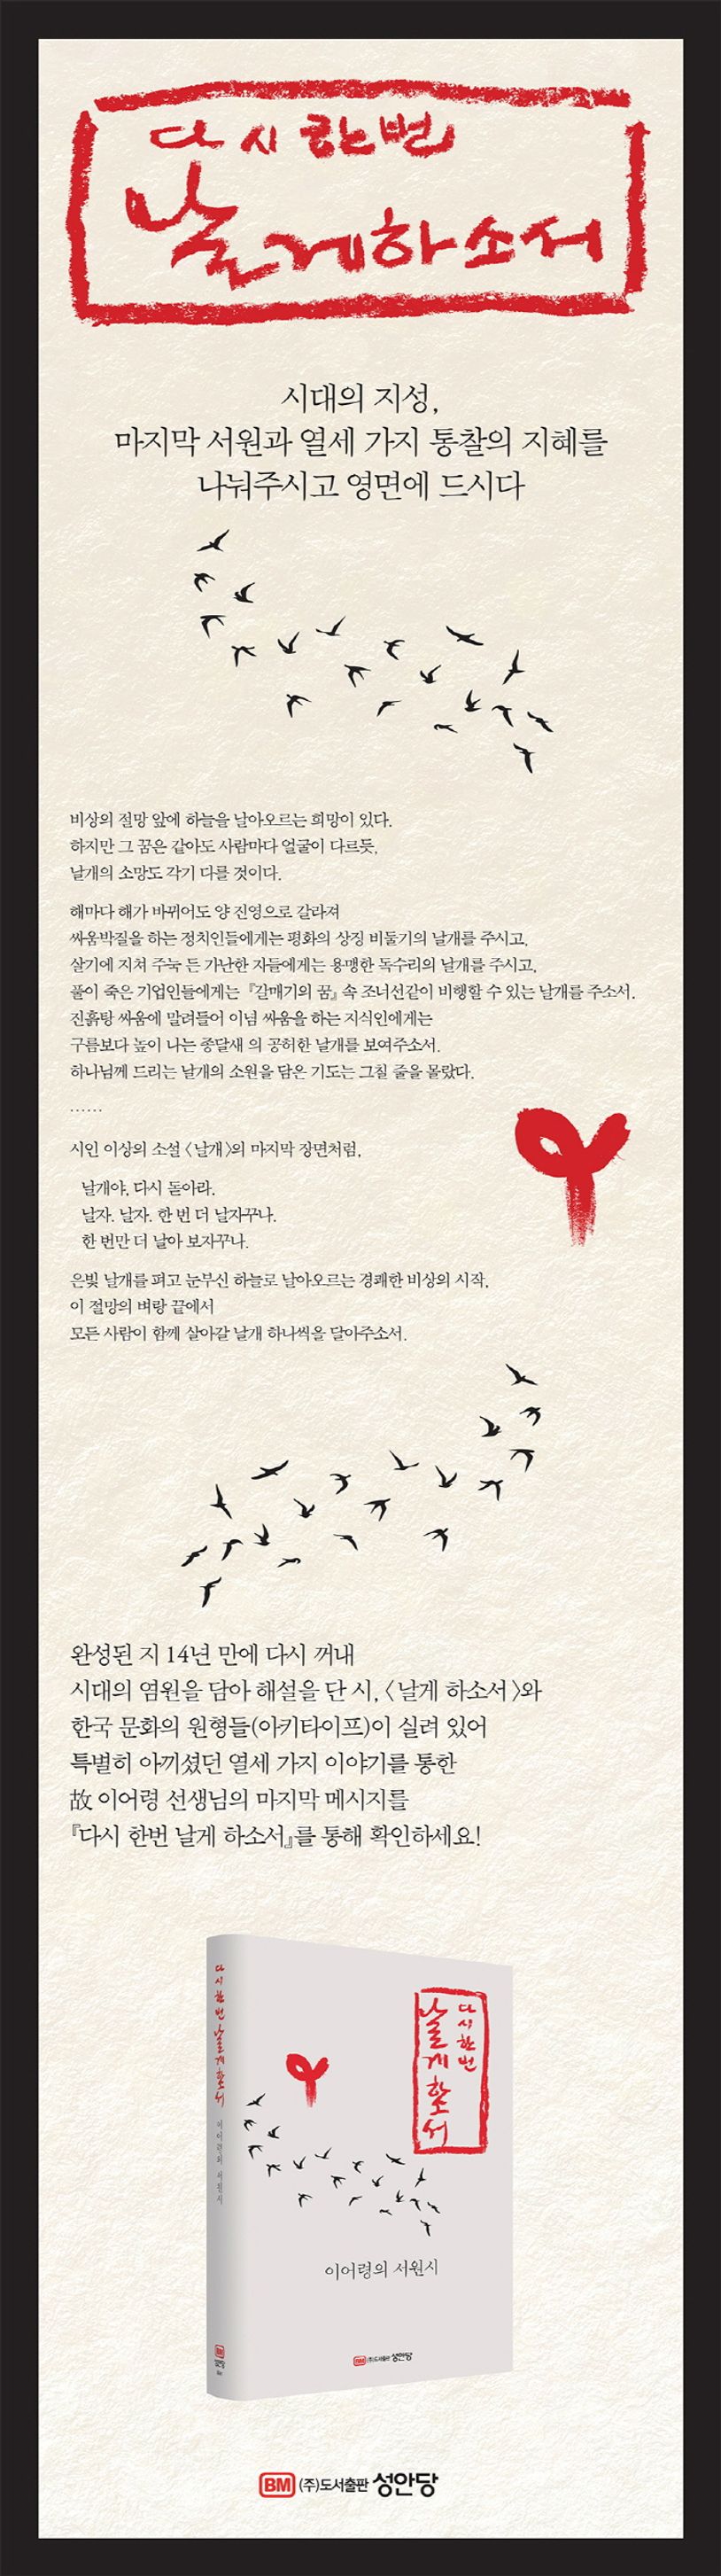 다시 한번
날게 하소서
시대의 지성,
마지막 서원과 열세 가지 통찰의 지혜를
나눠주시고 영면에 드시다
비상의 절망 앞에 하늘을 날아오르는 희망이 있다.
하지만 그 꿈은 같아도 사람마다 얼굴이 다르듯,
날개의 소망도 각기 다를 것이다.
해마다 해가 바뀌어도 양 진영으로 갈라져
싸움박질을 하는 정치인들에게는 평화의 상징 비둘기의 날개를 주시고,
살기에 지쳐 주눅 든 가난한 자들에게는 용맹한 독수리의 날개를 주시고,
풀이 죽은 기업인들에게는 『갈매기의 꿈』 속 조너선같이 비행할 수 있는 날개를 주소서.
진흙탕 싸움에 말려들어 이념 싸움을 하는 지식인에게는
구름보다 높이 나는 종달새 의 공허한 날개를 보여주소서.
하나님께 드리는 날개의 소원을 담은 기도는 그칠 줄을 몰랐다.
……
시인 이상의 소설 〈날개〉의 마지막 장면처럼,
날개야, 다시 돋아라.
날자. 날자. 한 번 더 날자꾸나.
한 번만 더 날아 보자꾸나.
은빛 날개를 펴고 눈부신 하늘로 날아오르는 경쾌한 비상의 시작,
이 절망의 벼랑 끝에서
모든 사람이 함께 살아갈 날개 하나씩을 달아주소서.
완성된 지 14년 만에 다시 꺼내
시대의 염원을 담아 해설을 단 시, 〈날게 하소서〉와
한국 문화의 원형들(아키타이프)이 실려 있어
특별히 아끼셨던 열세 가지 이야기를 통한
故 이어령 선생님의 마지막 메시지를
『다시 한번 날게 하소서』를 통해 확인하세요!
다시 한번 날게 하소서 이어령의 서원시
BM 성안당
다시 한번
날게 하소서
이어령의 서원시
BM (주)도서출판 성안당
BM (주)도서출판 성안당